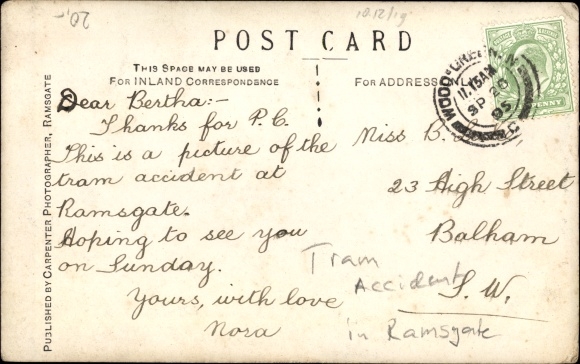 20,-
POST CARD
THIS SPACE MAY BE USED
FOR INLAND CORRESPONDENCE
FOR ADDRESS
WOOD GREEN. N
11.15AM
SP 26
05
PENNY
PUBLISHED BY CARPENTER PHOTOGRAPHER, RAMSGATE
Dear Bertha:-
Thanks for P.C.
This is a picture of the
tram accident at
Ramsgate.
Hoping to see you
on Sunday.
Yours, with love
Nora
Miss B.
23 High Street
Balham
S.W.
Tram
Accident
in Ramsgate